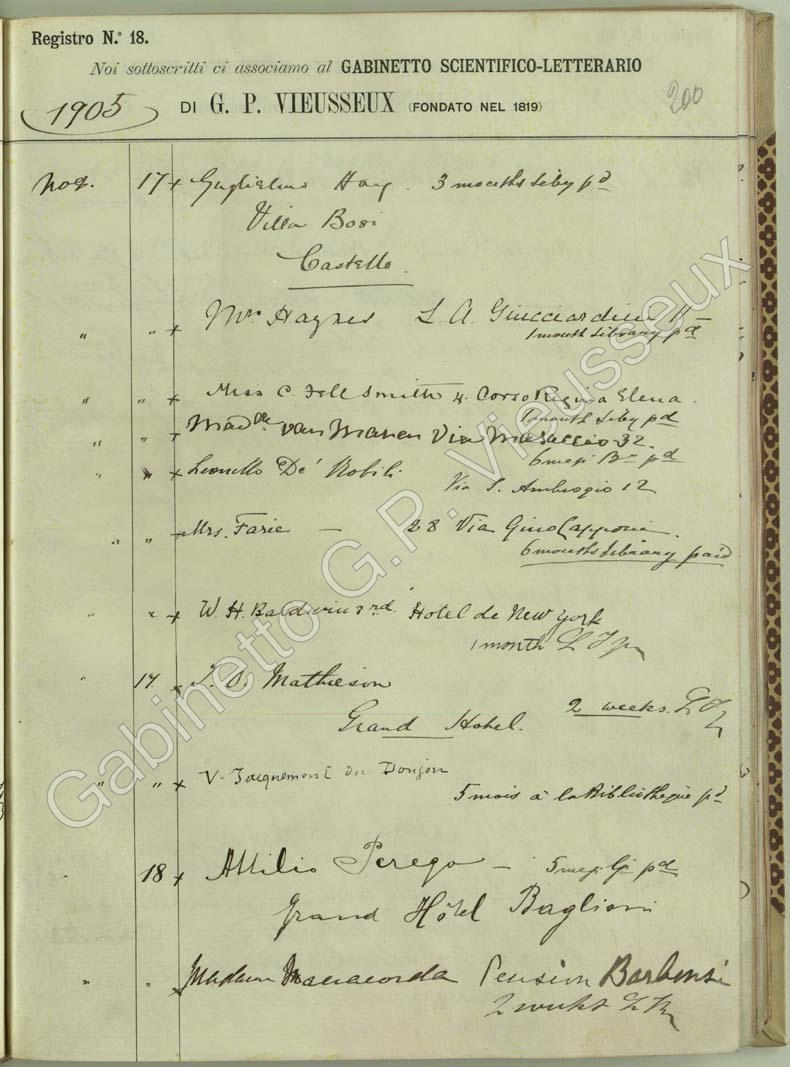 Registro N.° 18.
Noi sottoscritti ci associamo al GABINETTO SCIENTIFICO-LETTERARIO
1905
DI G. P. VIEUSSEUX (FONDATO NEL 1819)
200
Nov. 17 x Guglielmo 3 months liby pd
Villa Bosi
Castello
" " x Mrs Haynes L. A. Guicciardini 11 —
1 month library pd
" " x Miss C. Fell Smith 4. Corso Regina Elena.
1 month liby pd
" " x van Manen Via Masaccio 32.
6 mesi pd
" " x Lionello De' Nobili
Via S. Ambrogio 12
" " x Mrs. Farie — 28 Via Gino Capponi.
6 months library paid
" " x W. H. Baldwin 3rd. Hotel de New York
1 month
" 17 x Mathieson
2 weeks.
Grand Hotel.
" " x V. Jacquemont du Donjon
5 mois à la Bibliothèque pd
" 18 x Attilio Perego — 5 mesi pd
Grand Hôtel Baglioni
" " x Madame Pension Barbensi
2 weeks
Gabinetto G.P. Vieusseux